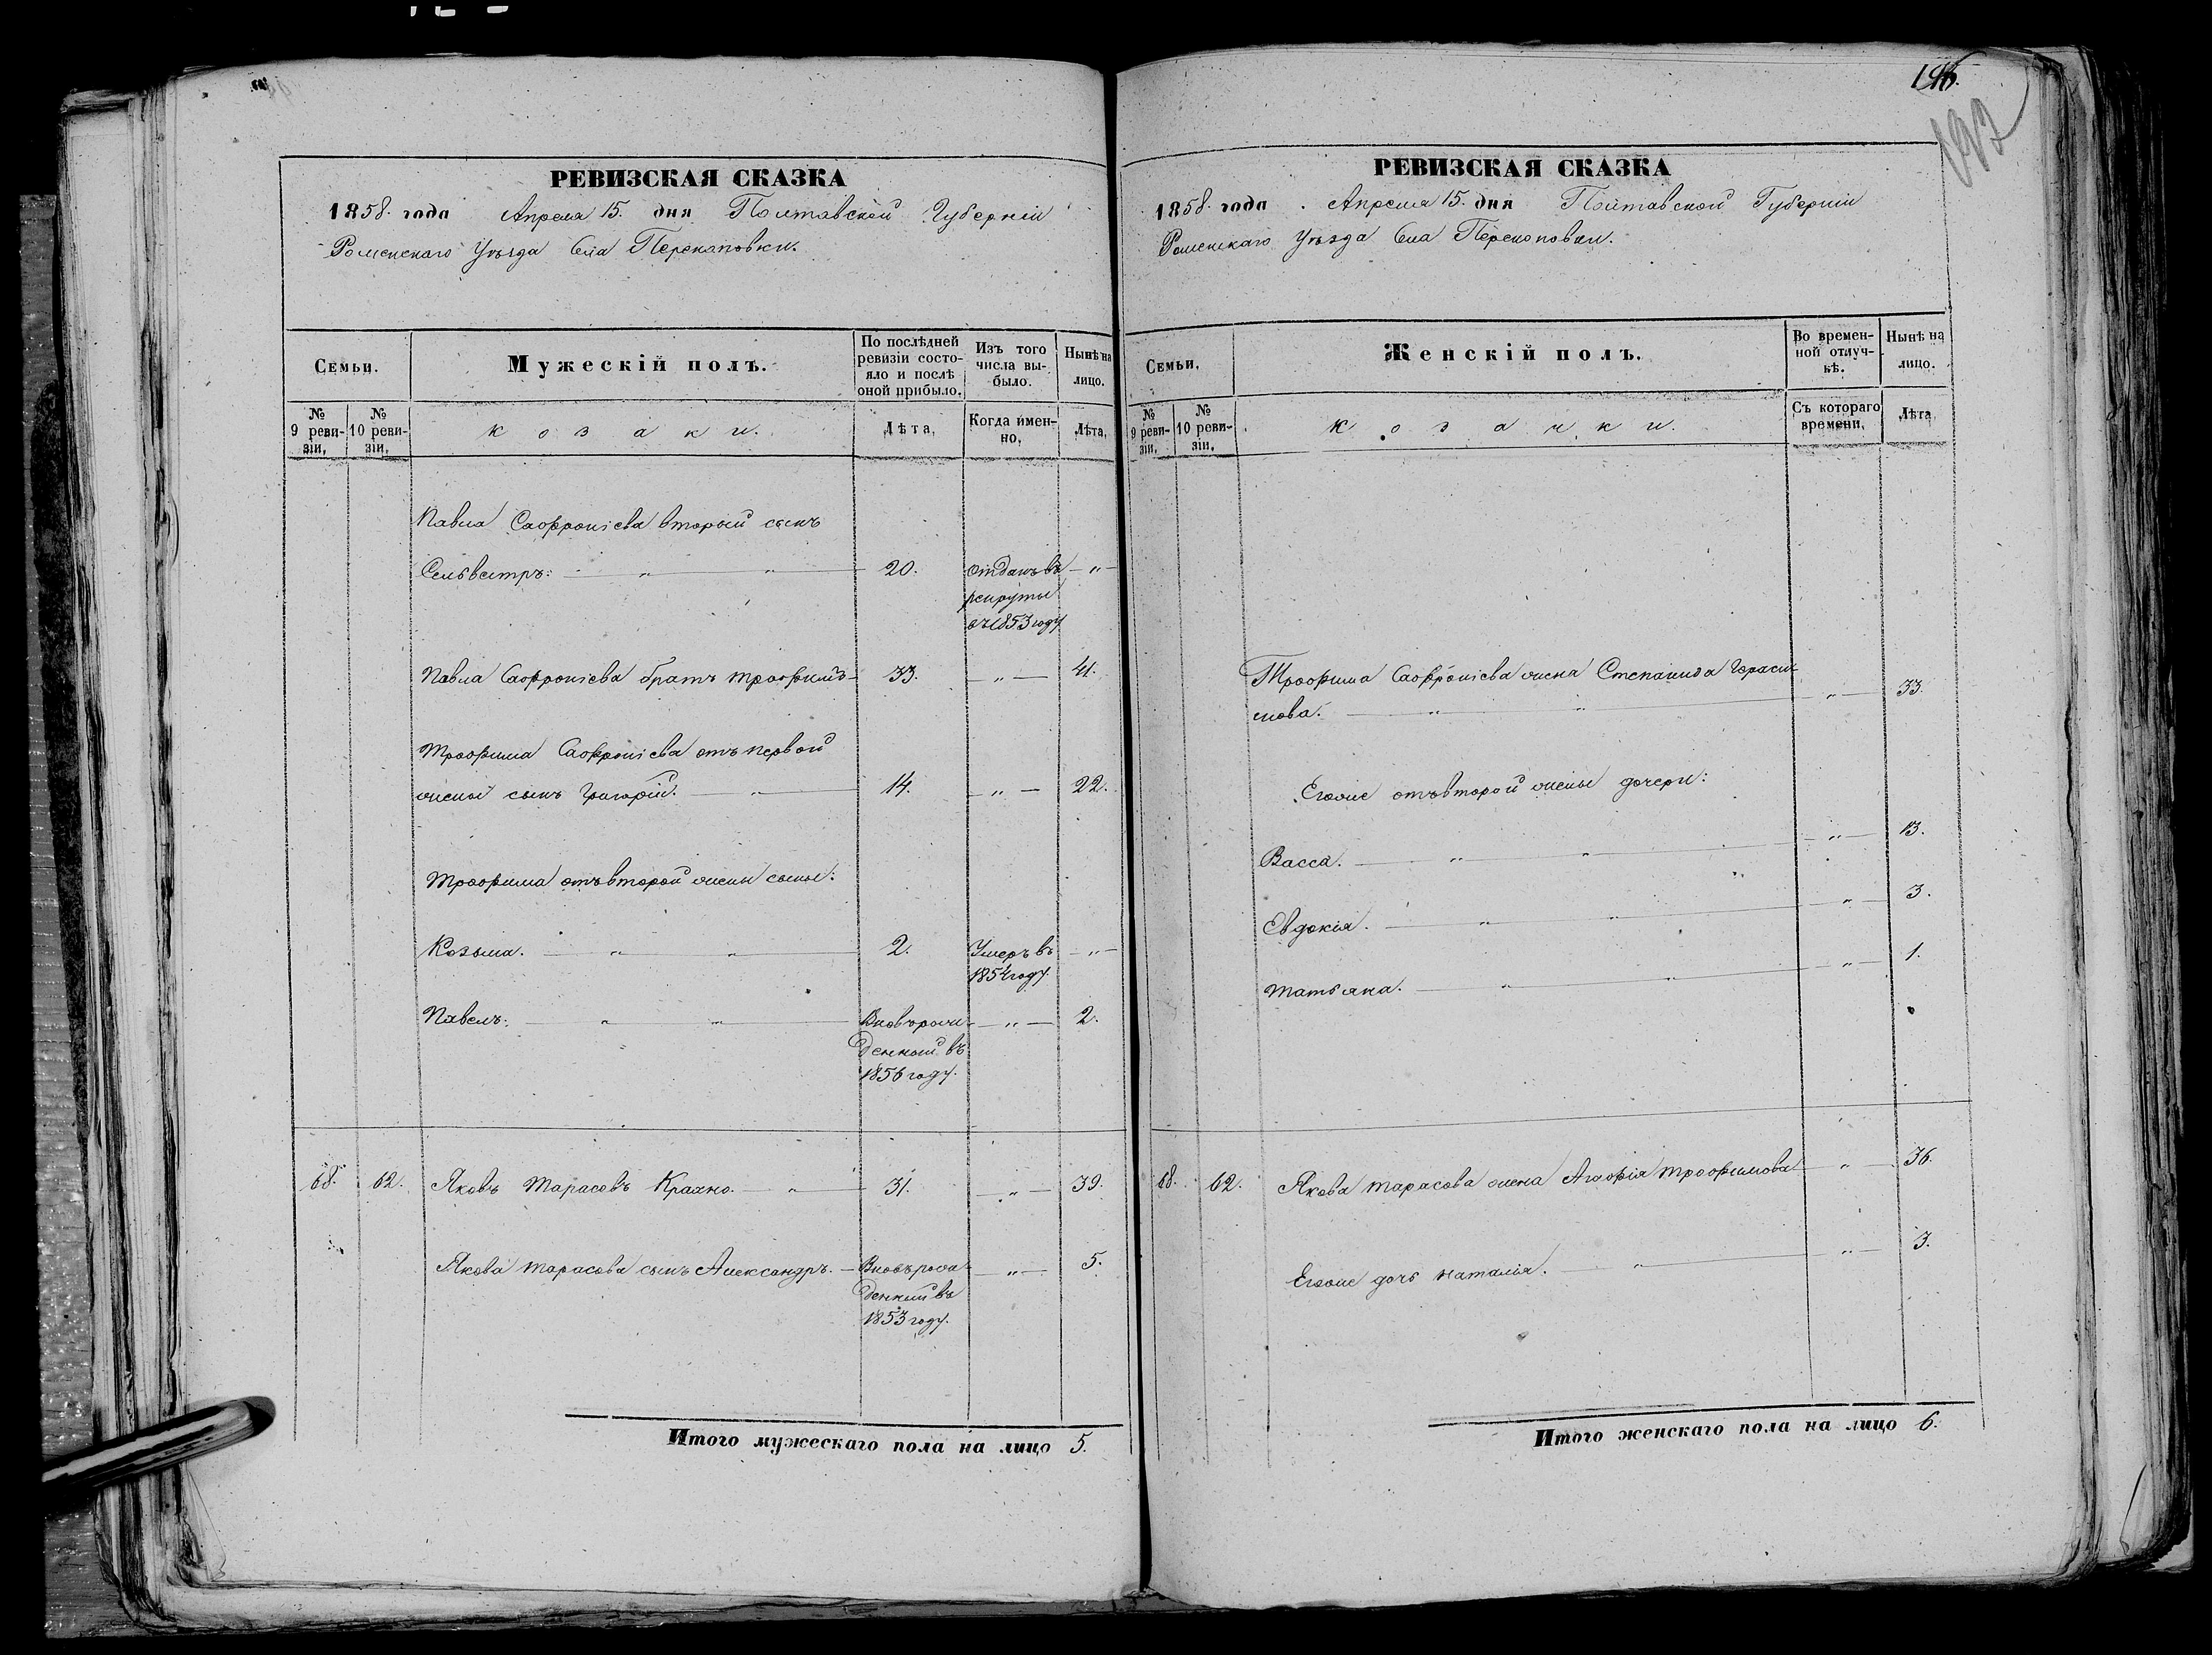 РЕВИЗСКАЯ СКАЗКА
1858. года Апреля 15. дня Полтавской Губерніи
Роменскаго Уѣзда Села Перекоповки.
Семьи.
Мужескій полъ.
По послѣдней ревизіи состояло и послѣ оной прибыло.
Изъ того числа выбыло.
Нынѣ на лицо.
№ 9 ревизіи.
№ 10 ревизіи.
козаки.
Лѣта.
Когда именно.
Лѣта.
Павла Сафроніева вторый сынъ
Сельвестръ: — „ — „ — 20. отданъ въ — „ —
рекруты
въ 1853 году
Павла Сафроніева братъ Трофимъ — 33. — „ — 41.
Трофима Сафроніева отъ первой
жены сынъ Григорій. — „ — 14. — „ — 22.
Трофима отъ второй жены сыны:
Козьма. — „ — „ — 2. Умеръ въ — „ —
185 году
Павелъ: — „ — „ — Вновърож- — „ — 2.
денный въ
1856 году.
68. 62. Яковъ Тарасовъ Крахно. „ — 31. — „ — 39.
Якова Тарасова сынъ Александръ. — Вновърож- — „ — 5.
денный въ
1853 году.
Итого мужескаго пола на лицо 5.
192
РЕВИЗСКАЯ СКАЗКА
1858. года. Апреля 15. дня Полтавской Губерніи
Роменскаго Уѣзда Села Перекоповки.
Семьи.
Женскій полъ.
Во временной отлучкѣ.
Нынѣ на лицо.
№ 9 ревизіи.
№ 10 ревизіи.
козачки.
Съ котораго времени.
Лѣта
Трофима Сафроніева жена Степанида Гераси-
мова. — „ — „ — „ — 33.
Егоже отъ второй жены дочери:
Васса. — „ — „ — „ — 13.
Евдокія. — „ — „ — „ — 3.
Татьяна. — „ — „ — „ — 1.
68. 62. Якова Тарасова жена Агафія Трофимова — „ — 36.
Егоже дочь Наталія. „ — „ — 3.
Итого женскаго пола на лицо 6.